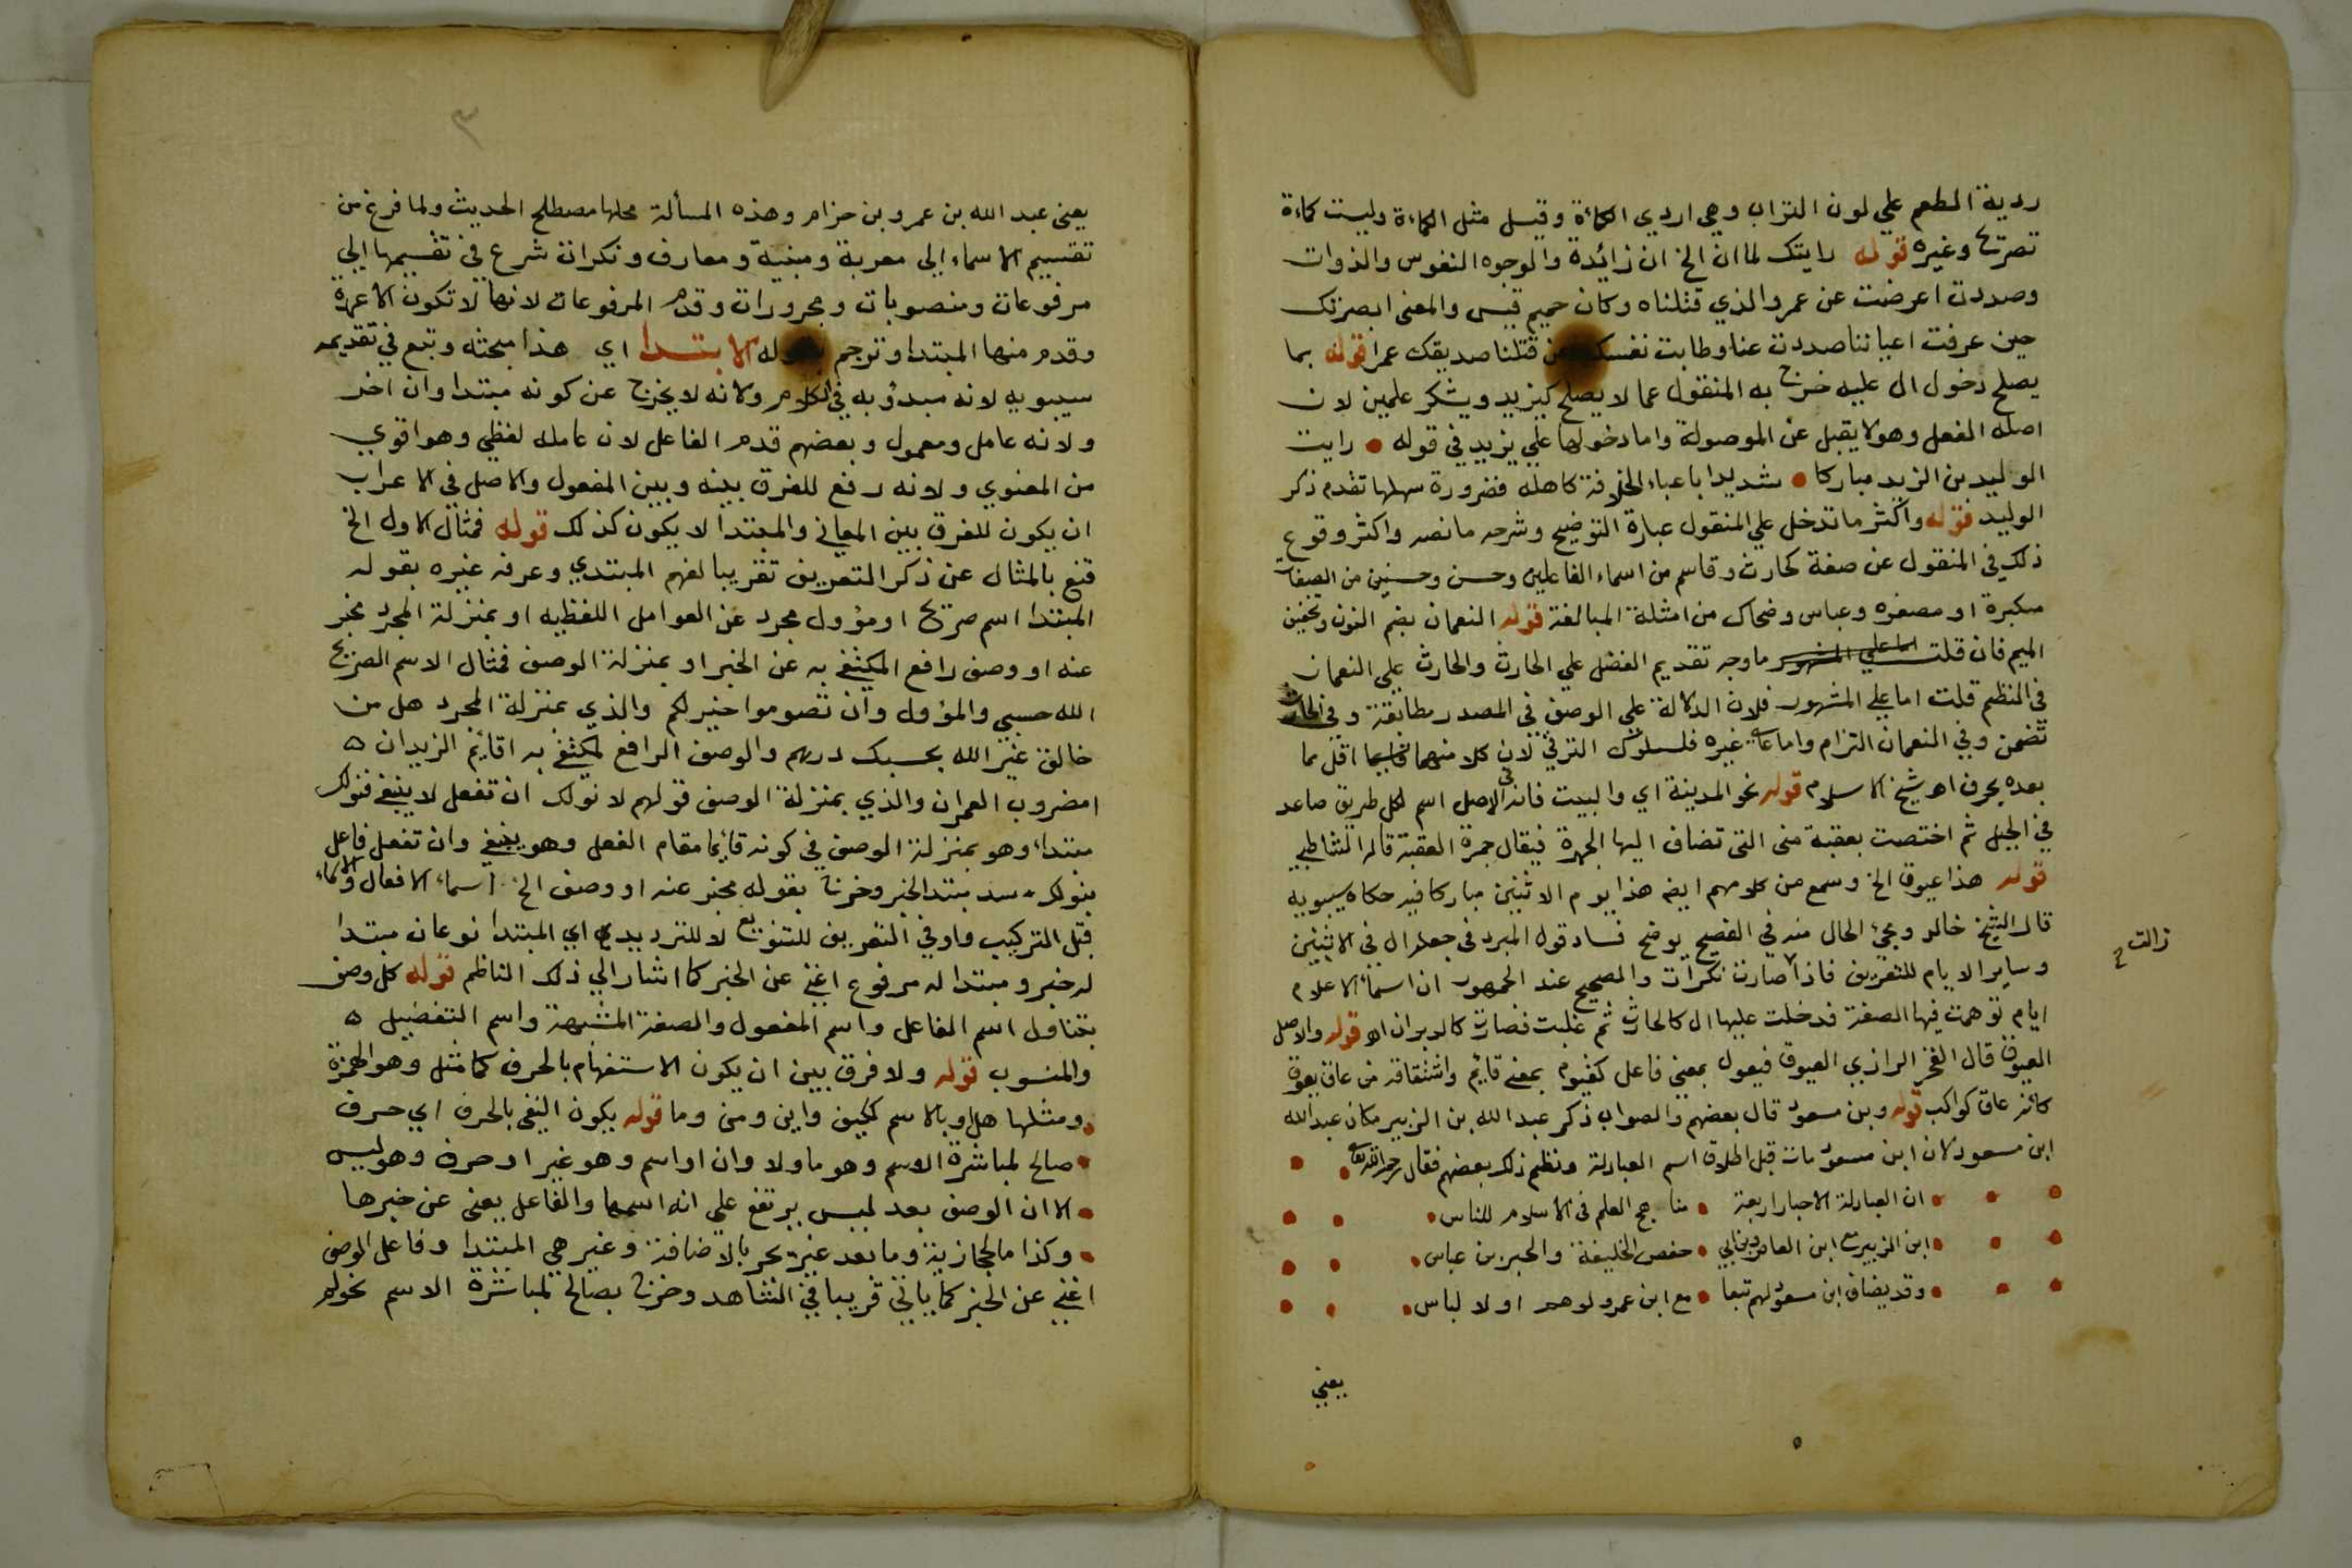 ردية الطعم علي لون التراب وهي اردي الكمأة وقيل مثل الكمأة وليست كمأة
تصريح وغيره قوله رايتك لما ان الخ ان زائدة والوجوه النفوس والذوات
وصددت اعرضت عن عمرو الذي قتلناه وكان حميم قيس والمعنى ابصرتك
حين عرفت اعياننا صددت عنا وطابت نفسك عن قتلنا صديقك عمرا قوله بما
يصلح دخول ال عليه خرج به المنقول عما لا يصلح كيزيد ويشكر علمين لان
اصله الفعل وهو لا يقبل عن الموصولة واما دخولها علي يزيد في قوله • رايت
الوليد بن اليزيد مباركا • شديدا باعباء الخلافة كاهله فضرورة سهلها تقدم ذكر
الوليد قوله واكثر ما تدخل علي المنقول عبارة التوضيح وشرحه ما نصه واكثر وقوع
ذلك في المنقول عن صفة كحارث وقاسم من اسماء الفاعلين وحسن وحسين من الصفات
مكبرة او مصغرة وعباس وضحاك من امثلة المبالغة قوله النعمان بضم النون وتخفيف
الميم فان قلت اما علي المشهور ما وجه تقديم الفضل علي الحارث والحارث علي النعمان
في النظم قلت اما علي المشهور فلان الدلالة علي الوصف في المصدر مطابقة وفي الحارث
تضمن وفي النعمان التزام واما علي غيره فلسلوك الترقي لان كلا منهما اقل مما
بعده بحرف اه شيخ الاسلام قوله نحو المدينة اي والبيت فانه في الاصل اسم لكل طريق صاعد
في الجبل ثم اختصت بعقبة منى التي تضاف اليها الجمرة فيقال جمرة العقبة قاله الشاطبي
قوله هذا عيوق الخ وسمع من كلامهم ايضا هذا يوم الاثنين مباركا فيه حكاه سيبويه
قال الشيخ خالد ومجئ الحال منه في الفصيح يوضح فساد قول المبرد في جعله ال في الاثنين
وساير الايام للتعريف فاذا زالت صارت نكرات والصحيح عند الجمهور ان اسماء الاعلام
ايام توهمت فيها الصفة فدخلت عليها ال كالحارث ثم غلبت فصارت كالدبران اه قوله والاصل
العيوق قال الفخر الرازي العيوق فيعول بمعنى فاعل كقيوم بمعنى قائم واشتقاقه من عاق يعوق
كانه عاق كواكب قوله وبن مسعود قال بعضهم والصواب ذكر عبد الله بن الزبير مكان عبد الله
ابن مسعود لان ابن مسعود مات قبل اطلاق اسم العبادلة ونظم ذلك بعضهم فقال رحمه الله تعالى
• ان العبادلة الاحبار اربعة • مناهج العلم في الاسلام للناس •
• ابن الزبير مع ابن العاص وبن ابي • حفص الخليفة والحبر بن عباس •
• وقد يضاف ابن مسعود لهم تبعا • مع ابن عمرو لوهم او لالباس •
يعني
يعني عبد الله بن عمرو بن حزام وهذه المسألة محلها مصطلح الحديث ولما فرغ من
تقسيم الاسماء الى معربة ومبنية ومعارف ونكرات شرع في تقسيمها الي
مرفوعات ومنصوبات ومجرورات وقدم المرفوعات لانها لا تكون الا عمدة
وقدم منها المبتدا وترجم بقوله الابتدا اي هذا مبحثه وتبع في تقديمه
سيبويه لانه مبدؤ به في الكلام ولانه لا يخرج عن كونه مبتدا وان اخر
ولانه عامل ومعمول وبعضهم قدم الفاعل لان عامله لفظي وهو اقوي
من المعنوي ولانه رفع للفرق بينه وبين المفعول والاصل في الاعراب
ان يكون للفرق بين المعاني والمبتدا لا يكون كذلك قوله فمثال الاول الخ
قنع بالمثال عن ذكر التعريف تقريبا لفهم المبتدي وعرفه غيره بقوله
المبتدا اسم صريح او مؤول مجرد عن العوامل اللفظيه او بمنزلة المجرد مخبر
عنه او وصف رافع المكتفى به عن الخبر او بمنزلة الوصف فمثال الاسم الصريح
الله حسبي والمؤول وان تصوموا خير لكم والذي بمنزلة المجرد هل من
خالق غير الله بحسبك درهم والوصف الرافع لمكتفى به اقائم الزيدان ه
امضروب العمران والذي بمنزلة الوصف قولهم لا نولك ان تفعل لا ينبغي فنولك
مبتداء وهو بمنزلة الوصف في كونه قائما مقام الفعل وهو ينبغي وان تفعل فاعل
بنولك سد مسد الخبر وخرج بقوله مخبر عنه او وصف الخ اسماء الافعال والاسماء
قبل التركيب واو في التعريف للتنويع لا للترديد اي المبتدا نوعان مبتدا
له خبر ومبتدا له مرفوع اغنى عن الخبر كما اشار الي ذلك الناظم قوله كل وصف
يتناول اسم الفاعل واسم المفعول والصفة المشبهة واسم التفضيل ه
والمنسوب قوله ولا فرق بين ان يكون الاستفهام بالحرف كما مثل وهو الهمزة
ومثلها هل او بالاسم ككيف واين ومن وما قوله يكون النفي بالحرف اي حرف
• صالح لمباشرة الاسم وهو ما ولا وان او اسم وهو غير او حرف وهو ليس
• الا ان الوصف بعد ليس يرتفع علي انه اسمها والفاعل يغنى عن خبرها
• وكذا ما الحجازية وما بعد غير يجر بالاضافة وغير هي المبتدا وفاعل الوصف
اغنى عن الخبر كما ياتي قريبا في الشاهد وخرج بصالح لمباشرة الاسم نحو لم
زالت صح
٣